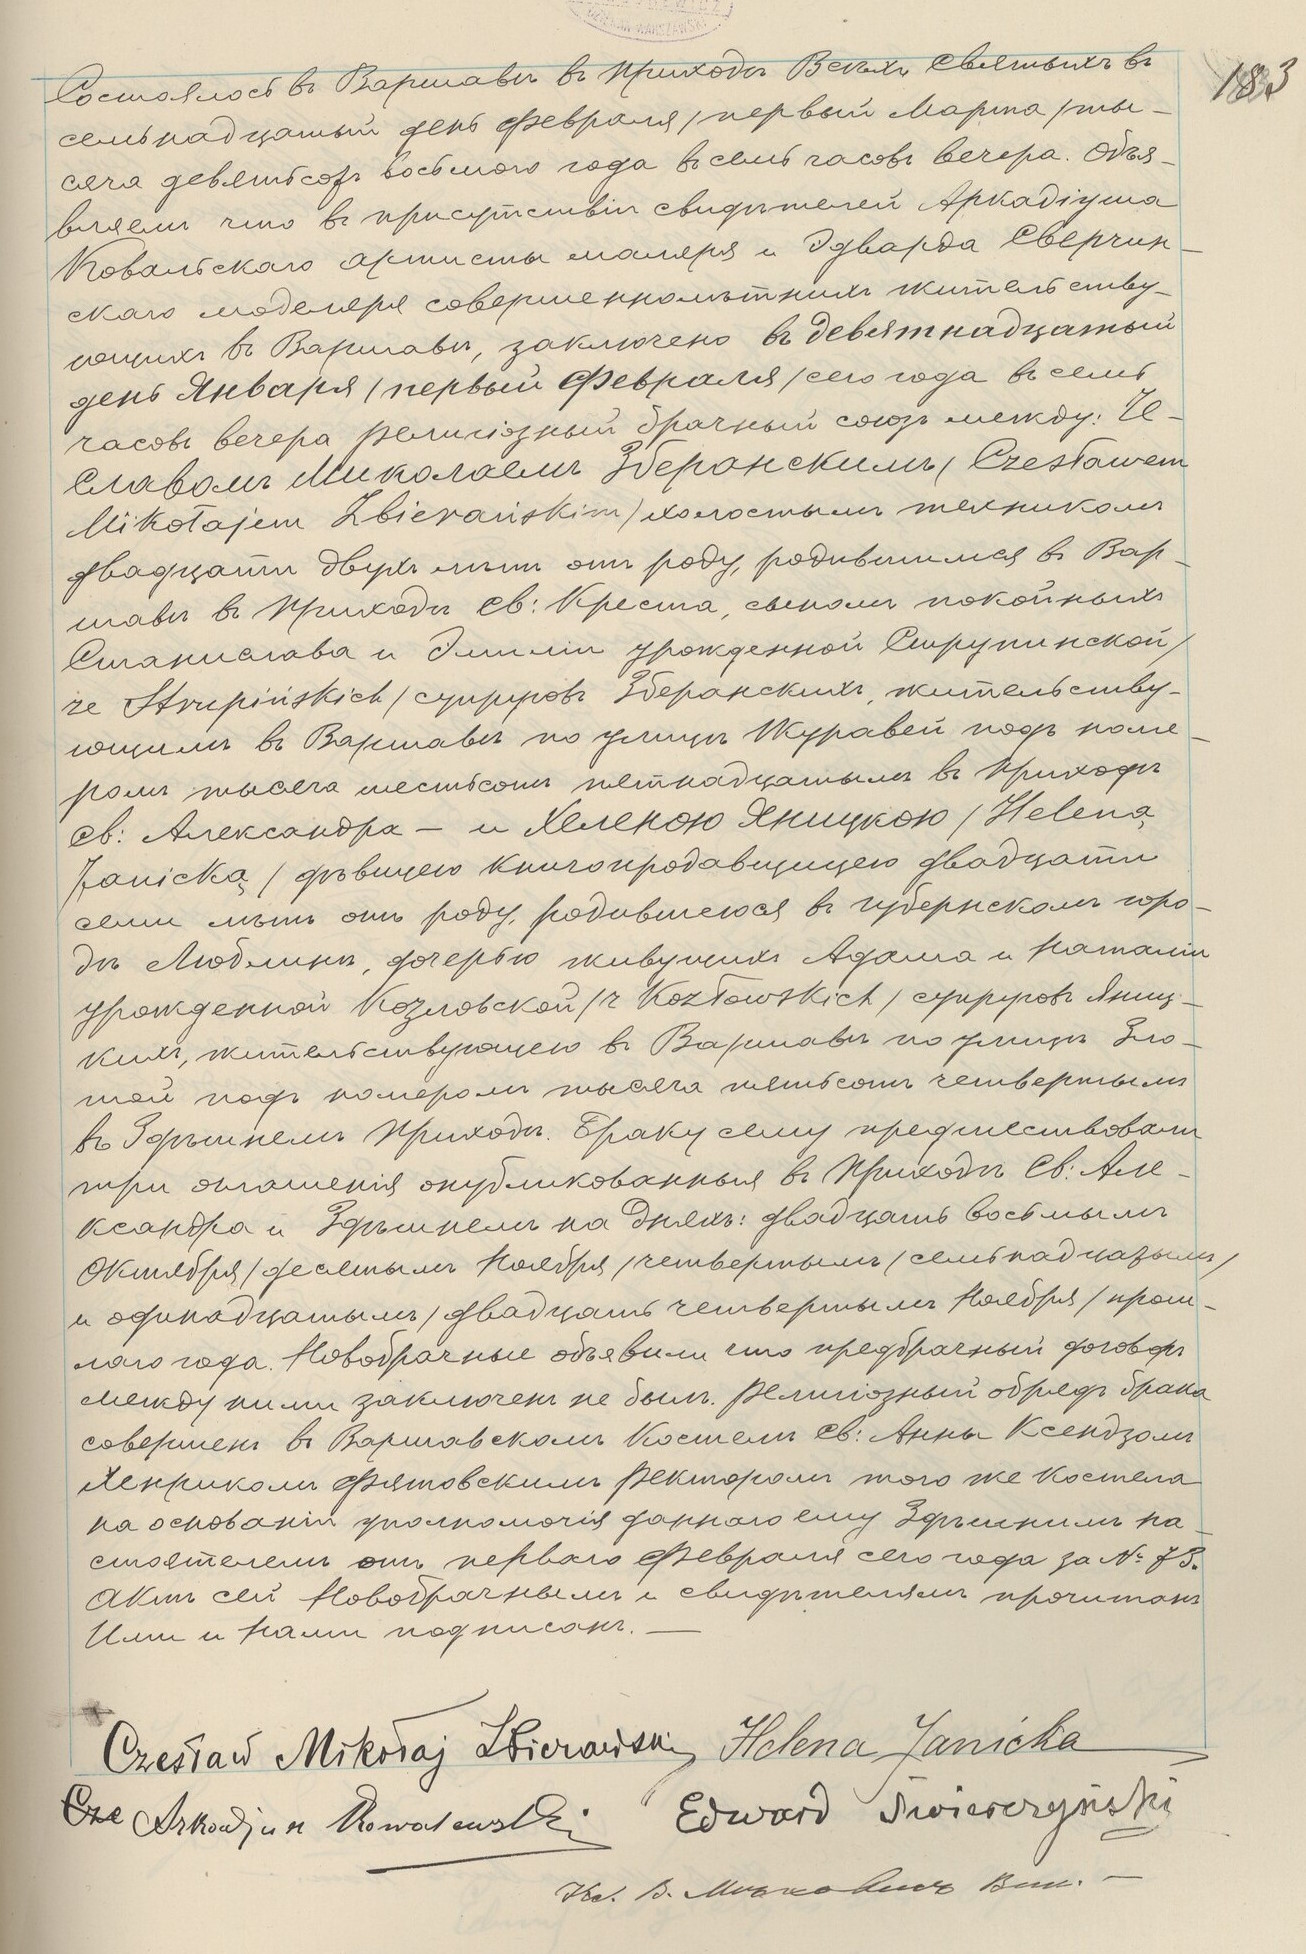 183
Состоялось въ Варшавѣ въ Приходѣ Всѣхъ Святыхъ въ
семьнадцатый день Февраля /первый Марта/ ты-
сяча девятьсотъ восьмого года въ семь часовъ вечера. Объя-
вляемъ что въ присутствіи свидѣтелей Аркадіуша
Ковальскаго артисты маляря и Эдварда Сверчин-
скаго моделяря совершеннолѣтнихъ жительству-
ющихъ въ Варшавѣ, заключено въ девятнадцатый
день Января /первый Февраля/ сего года въ семь
часовъ вечера религіозный брачный союзъ между: Че-
славомъ Миколаемъ Зберанскимъ /Czesławem
Mikołajem Zbierańskim/ холостымъ техникомъ
двадцати двухъ лѣтъ отъ роду, родившимся въ Вар-
шавѣ въ Приходѣ Св: Креста, сыномъ покойныхъ
Станислава и Эмиліи урожденной Струпинской/
ze Strupińskich/ супруговъ Зберанскихъ, жительству-
ющимъ въ Варшавѣ по улицѣ Журавей подъ номе-
ромъ тысяча шестьсотъ пятнадцатымъ въ Приходѣ
Св: Александра – и Хеленою Яницкою /Heleną
Janicką/ дѣвицею книгопродавщицею двадцати
семи лѣтъ отъ роду, родившеюся въ губернскомъ горо-
дѣ Люблинѣ, дочерью живущихъ Адама и Наталіи
урожденной Козловской /z Kozłowskich/ супруговъ Яниц-
кихъ, жительствующею въ Варшавѣ по улицѣ Зло-
той подъ номеромъ тысяча пятьсотъ четвертымъ
въ Здѣшнемъ Приходѣ. Браку сему предшествовали
три оглашенія опубликованныя въ Приходѣ Св: Але-
ксандра и Здѣшнемъ на дняхъ: двадцать восьмымъ
Октября /десятымъ Ноября/ четвертымъ /семьнадцатымъ/
и одинадцатымъ /двадцать четвертымъ Ноября/ прош-
лаго года. Новобрачные объявили что предбрачный договоръ
между ними заключенъ не былъ. Религіозный обрядъ брака
совершенъ въ Варшавскомъ Костелѣ Св: Анны Ксендзомъ
Хенрикомъ Фятовскимъ Ректоромъ того же Костела
на основаніи уполномочія даннаго ему Здѣшнимъ на-
стоятелемъ отъ перваго Февраля сего года за № 73.
Актъ сей Новобрачнымъ и свидѣтелямъ прочитанъ
Ими и Нами подписанъ. —
Czesław Mikołaj Zbierański Helena Janicka
Cze Arkadjusz Kowalewski Edward Świerczyński
Кс. В.